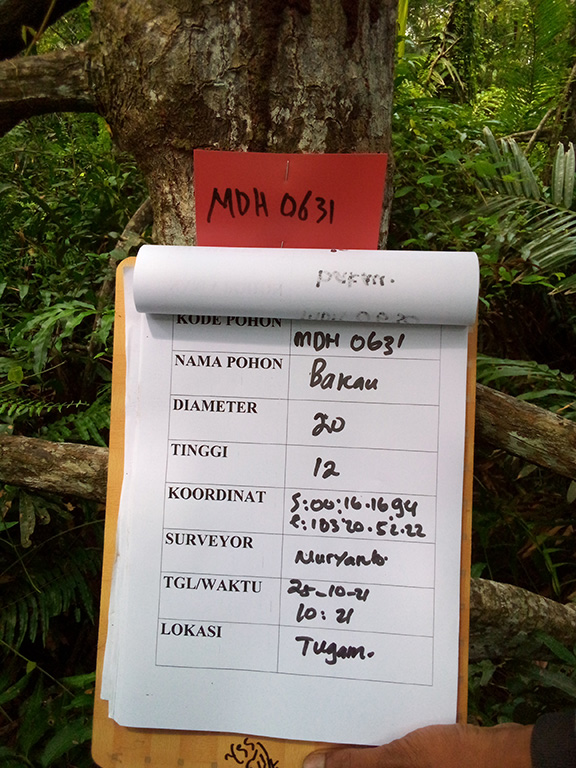 MDH 0631
KODE POHON MDH 0631
NAMA POHON Bakau
DIAMETER 20
TINGGI 12
KOORDINAT S:00:16.1694
E:10320.52.22
SURVEYOR Nuryanto
TGL/WAKTU 25-10-21
10:21
LOKASI Tugam.